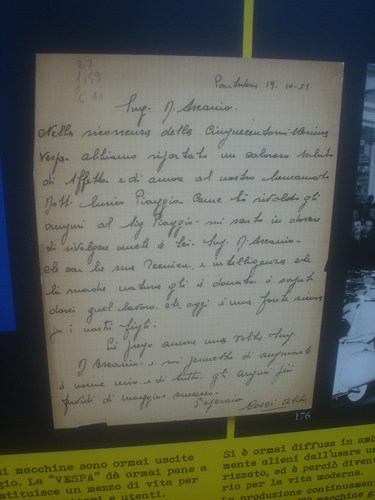 Pontedera 19.10.55
Ing. D'Ascanio.
Nella ricorrenza della Cinquecentomillesima
Vespa. abbiamo riportato un caloroso saluto
di Affetto e di amore al nostro beneamato
Dott. Enrico Piaggio. Come ho rivolto gli
auguri al Sig Piaggio. mi sento in dovere
di rivolgere anche a Lei. Ing. D'Ascanio.
che con la sua Tecnica, e intelligenza che
la madre natura gli à donato à saputo
darci quel lavoro che oggi è una fonte
per i nostri figli.
La prego ancora una volta Ing
D'Ascanio. e mi permetto di
à nome mio e di tutti. gli auguri più
di maggior successo.
L'operaio
Aldo
176
macchine sono ormai uscite
gio. La "VESPA" dà ormai pane a
stituisce un mezzo di vita per
e utenti.
Si è ormai diffusa in
mente alieni dall'usare
rizzato, ed è perciò diven
La produzione continuamen